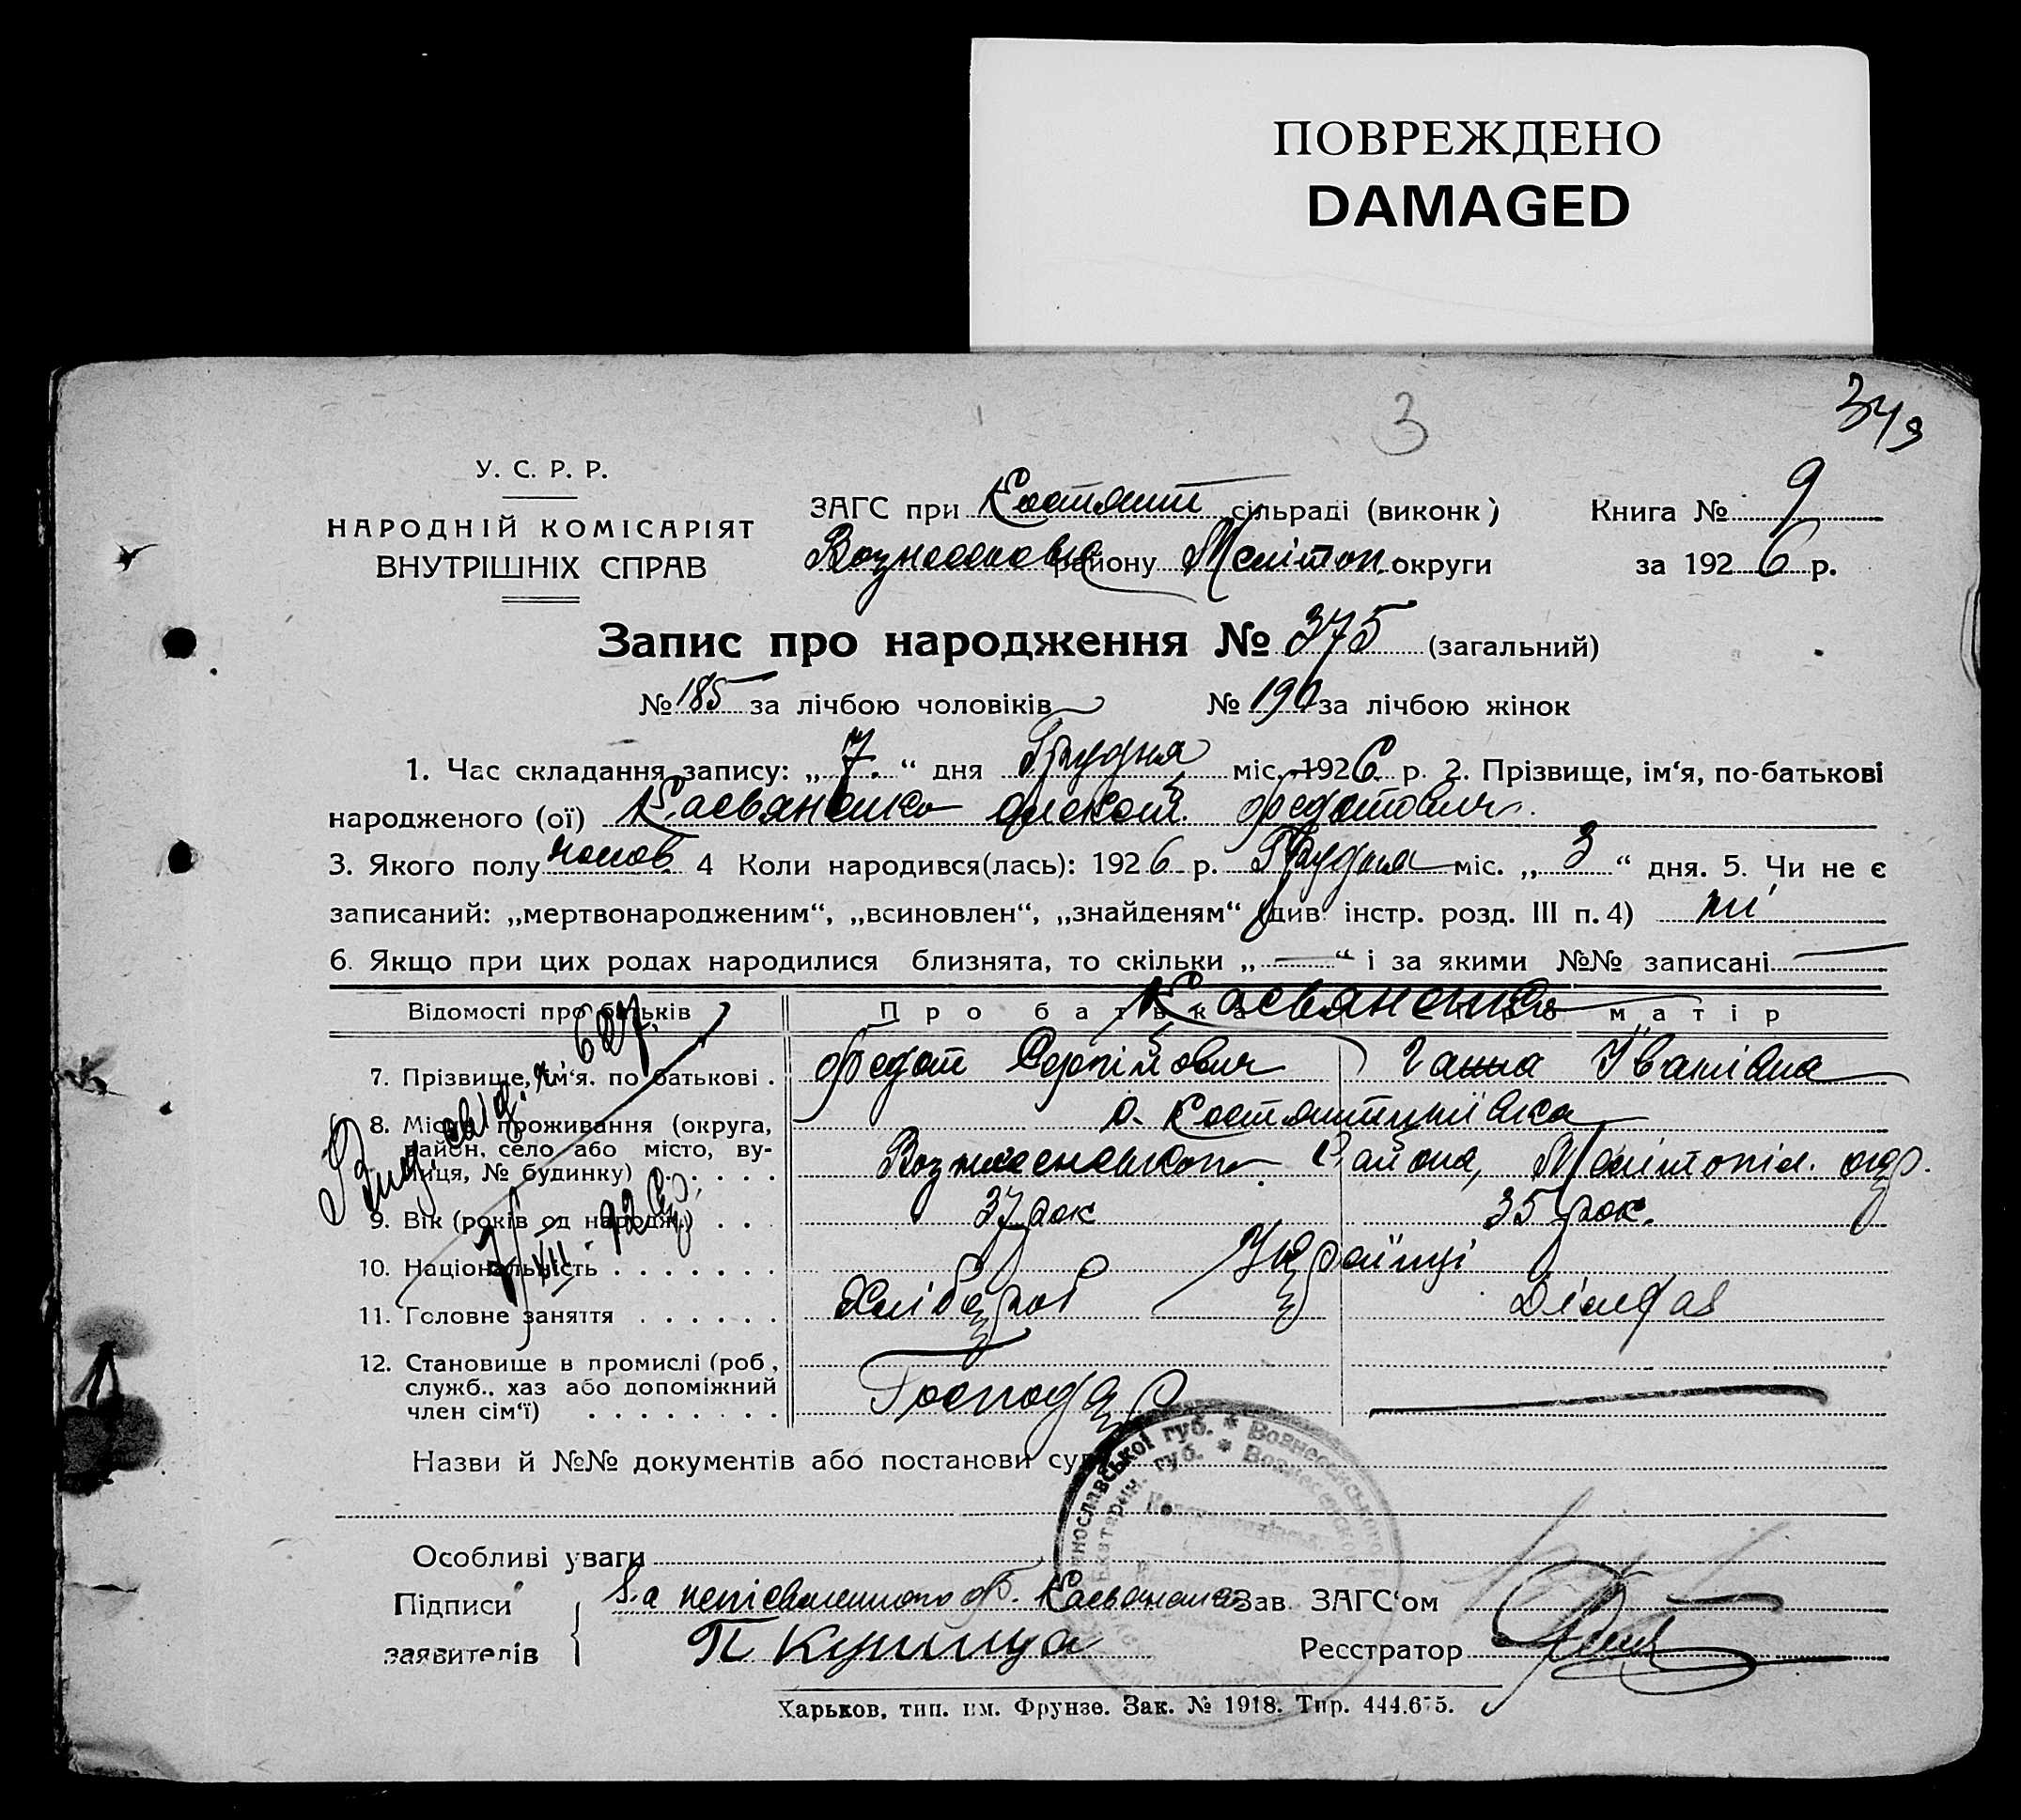 ПОВРЕЖДЕНО
DAMAGED
3
У. С. Р. Р.
НАРОДНІЙ КОМІСАРІЯТ
ВНУТРІШНІХ СПРАВ
ЗАГС при Костянт сільраді (виконк) Книга № 9
району Мелітоп. округи за 1926 р.
Запис про народження № 375 (загальний)
№ 185 за лічбою чоловіків № 190 за лічбою жінок
1. Час складання запису: „7.“ дня Грудня міс. 1926 р. 2. Прізвище, ім‘я, по-батькові
народженого (ої) Касьяненко Олексій Федотович
3. Якого полу чолов. 4 Коли народився(лась): 1926 р. Грудня міс. „3“ дня. 5. Чи не є
записаний: „мертвонародженим“, „всиновлен“, „знайденям“ (див. інстр. розд. III п. 4) ні
6. Якщо при цих родах народилися близнята, то скільки „—“ і за якими №№ записані —
Відомості про батьків Про батька Про матір
Касьяненко
7. Прізвище, ім‘я. по батькові . Федот Сергійович Ганна Іванівна
8. Місце проживання (округа, с. Костянтинівка
район, село або місто, ву-
лиця, № будинку) . . . . . . Вознесенського Району, Мелітопіл. окр.
9. Вік (років од народж.) . . . 37 рок 35 рок.
10. Національність . . . . . . . Українці
11. Головне заняття . . . . . . Хлібороб
12. Становище в промислі (роб.,
служб., хаз або допоміжний
член сім‘ї) . . . . . . . . Господар —
Вид. свід. № 627
7/XII - 926 р.
Назви й №№ документів або постанови суду
Особливі уваги
Підписи За неписьменного Ф. Касьяненка Зав. ЗАГС‘ом
заявителів П Куниця Реєстратор
Харьков, тип. им. Фрунзе. Зак. № 1918. Тир. 444.675.